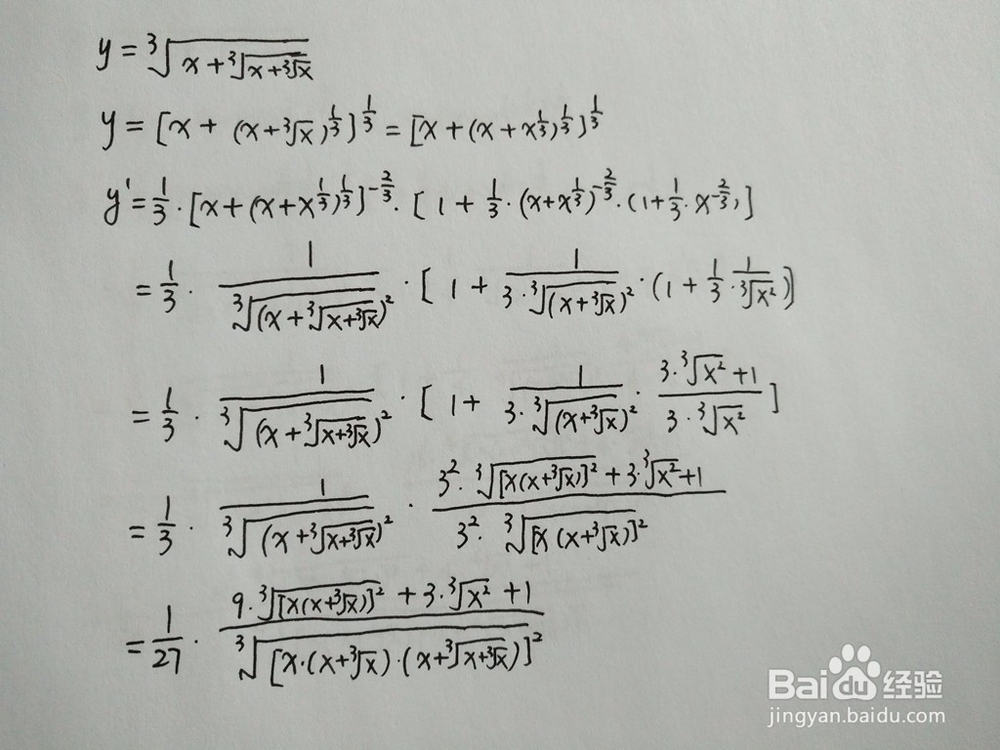 y = ∛(x + ∛(x + ∛x))
y = [x + (x + ∛x)^(1/3)]^(1/3) = [x + (x + x^(1/3))^(1/3)]^(1/3)
y' = 1/3 · [x + (x + x^(1/3))^(1/3)]^(-2/3) · [1 + 1/3 · (x + x^(1/3))^(-2/3) · (1 + 1/3 · x^(-2/3))]
= 1/3 · 1/∛((x + ∛(x + ∛x))²) · [1 + 1/(3 · ∛((x + ∛x)²)) · (1 + 1/3 · 1/∛(x²))]
= 1/3 · 1/∛((x + ∛(x + ∛x))²) · [1 + 1/(3 · ∛((x + ∛x)²)) · (3 · ∛(x²) + 1)/(3 · ∛(x²))]
= 1/3 · 1/∛((x + ∛(x + ∛x))²) · (3² · ∛([x(x + ∛x)]²) + 3 · ∛(x²) + 1)/(3² · ∛([x(x + ∛x)]²))
= 1/27 · (9 · ∛([x(x + ∛x)]²) + 3 · ∛(x²) + 1)/∛([x · (x + ∛x) · (x + ∛(x + ∛x))]²)
Bai du 经验
jingyan.baidu.com